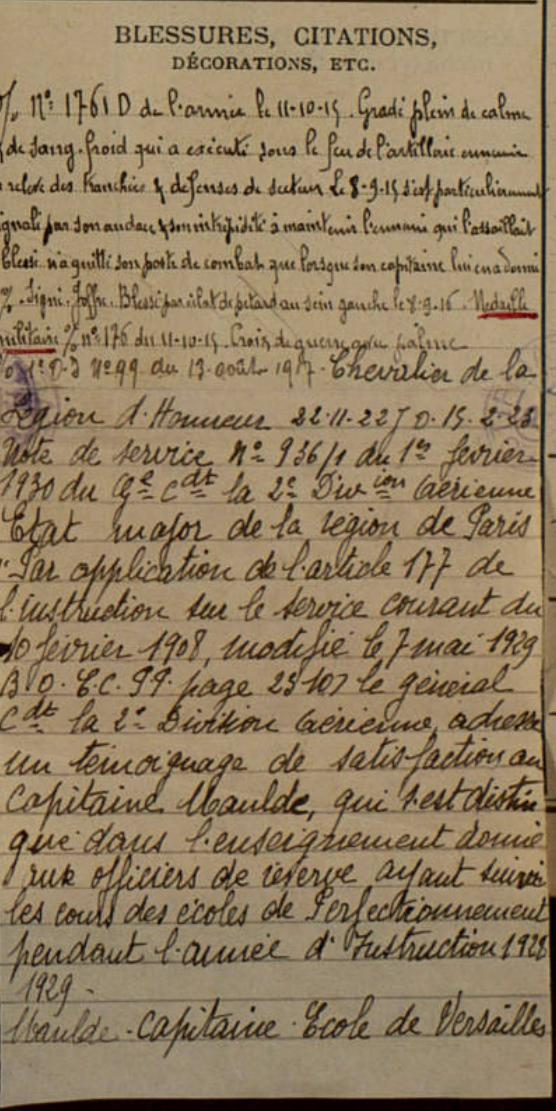 BLESSURES, CITATIONS,
DÉCORATIONS, ETC.
% Nº 1761 D de l'armée le 11-10-15. Gradé plein de calme
& de sang-froid qui a exécuté sous le feu de l'artillerie ennemie
relevé des tranchées & défenses de secteur Le 8-9-15 s'est particulièrement
signalé par son audace & son intrépidité à maintenir l'ennemi qui l'assaillait
Blessé n'a quitté son poste de combat que lorsque son capitaine lui en a donné
% Signé Joffre. Blessé par éclat de pétard au sein gauche le 8-9-16. Médaille
militaire % nº 176 du 11-10-15. Croix de guerre avec palme
1º D.I Nº 99 du 13 août 1917. Chevalier de la
Légion d'Honneur 22-11-22 J.O. 15-2-23
Note de service Nº 936/1 du 1er février
1930 du Gal Cdt la 2e Divion Aérienne
Etat major de la région de Paris
"Par application de l'article 177 de
l'instruction sur le service courant du
10 février 1908, modifié le 7 mai 1929
B.O. E.C. PP. page 23107 le général
Cdt la 2e Division Aérienne, adresse
un témoignage de satisfaction au
Capitaine Maulde, qui s'est distin
gué dans l'enseignement donné
aux officiers de réserve ayant suivi
les cours des écoles de Perfectionnement
pendant l'année d'Instruction 1928
1929 -
Maulde - Capitaine - Ecole de Versailles